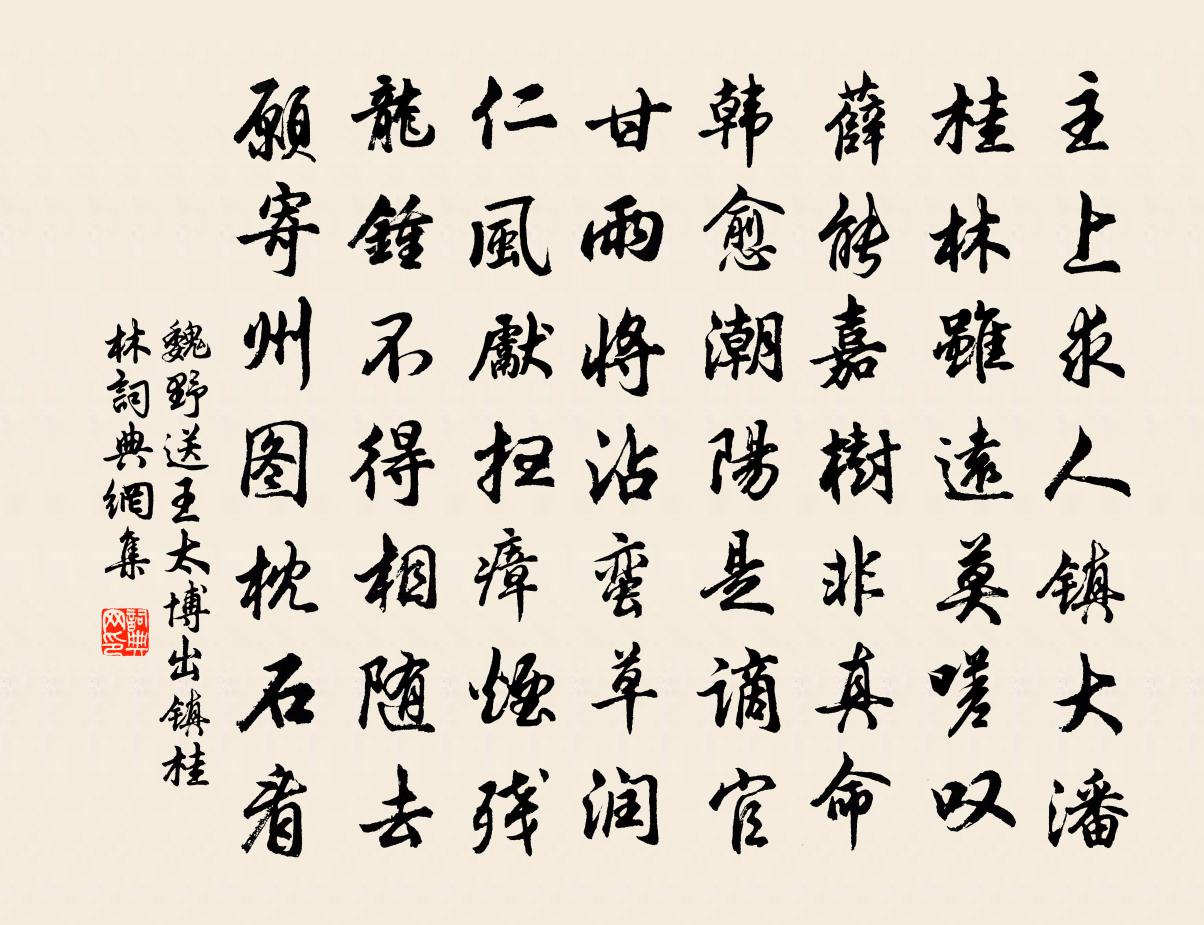 主上求人镇大潘
桂林雖遠莫嗟叹
薛能嘉樹非真命
韩愈潮陽是谪官
甘雨将沾蛮草润
仁風獻扫瘴煙残
龍鍾不得相随去
願寄州图枕石看
魏野送王太博出镇桂
林詞典網集
詞典
网印